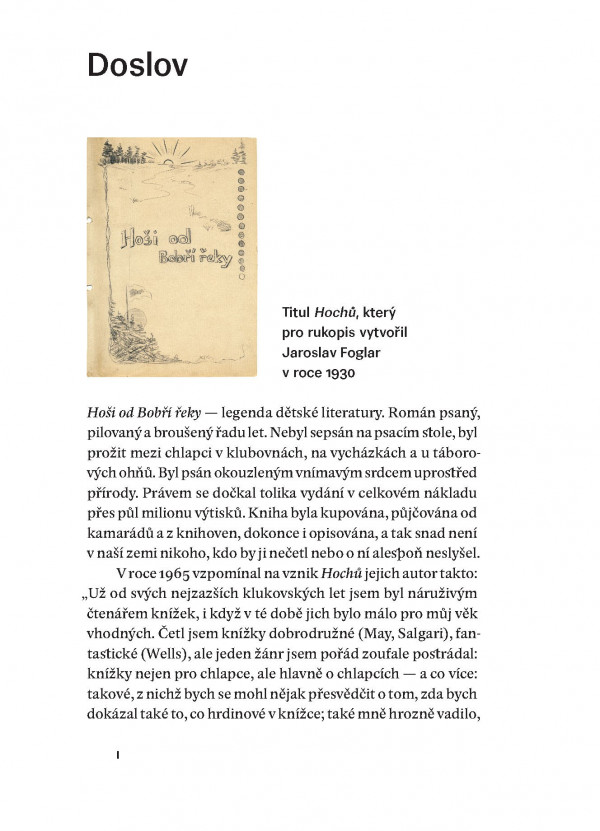 Doslov
Hoši od
Bobří řeky
Titul Hochů, který
pro rukopis vytvořil
Jaroslav Foglar
v roce 1930
Hoši od Bobří řeky — legenda dětské literatury. Román psaný,
pilovaný a broušený řadu let. Nebyl sepsán na psacím stole, byl
prožit mezi chlapci v klubovnách, na vycházkách a u táboro-
vých ohňů. Byl psán okouzleným vnímavým srdcem uprostřed
přírody. Právem se dočkal tolika vydání v celkovém nákladu
přes půl milionu výtisků. Kniha byla kupována, půjčována od
kamarádů a z knihoven, dokonce i opisována, a tak snad není
v naší zemi nikoho, kdo by ji nečetl nebo o ní alespoň neslyšel.
V roce 1965 vzpomínal na vznik Hochů jejich autor takto:
„Už od svých nejzazších klukovských let jsem byl náruživým
čtenářem knížek, i když v té době jich bylo málo pro můj věk
vhodných. Četl jsem knížky dobrodružné (May, Salgari), fan-
tastické (Wells), ale jeden žánr jsem pořád zoufale postrádal:
knížky nejen pro chlapce, ale hlavně o chlapcích — a co více:
takové, z nichž bych se mohl nějak přesvědčit o tom, zda bych
dokázal také to, co hrdinové v knížce; také mně hrozně vadilo,
I